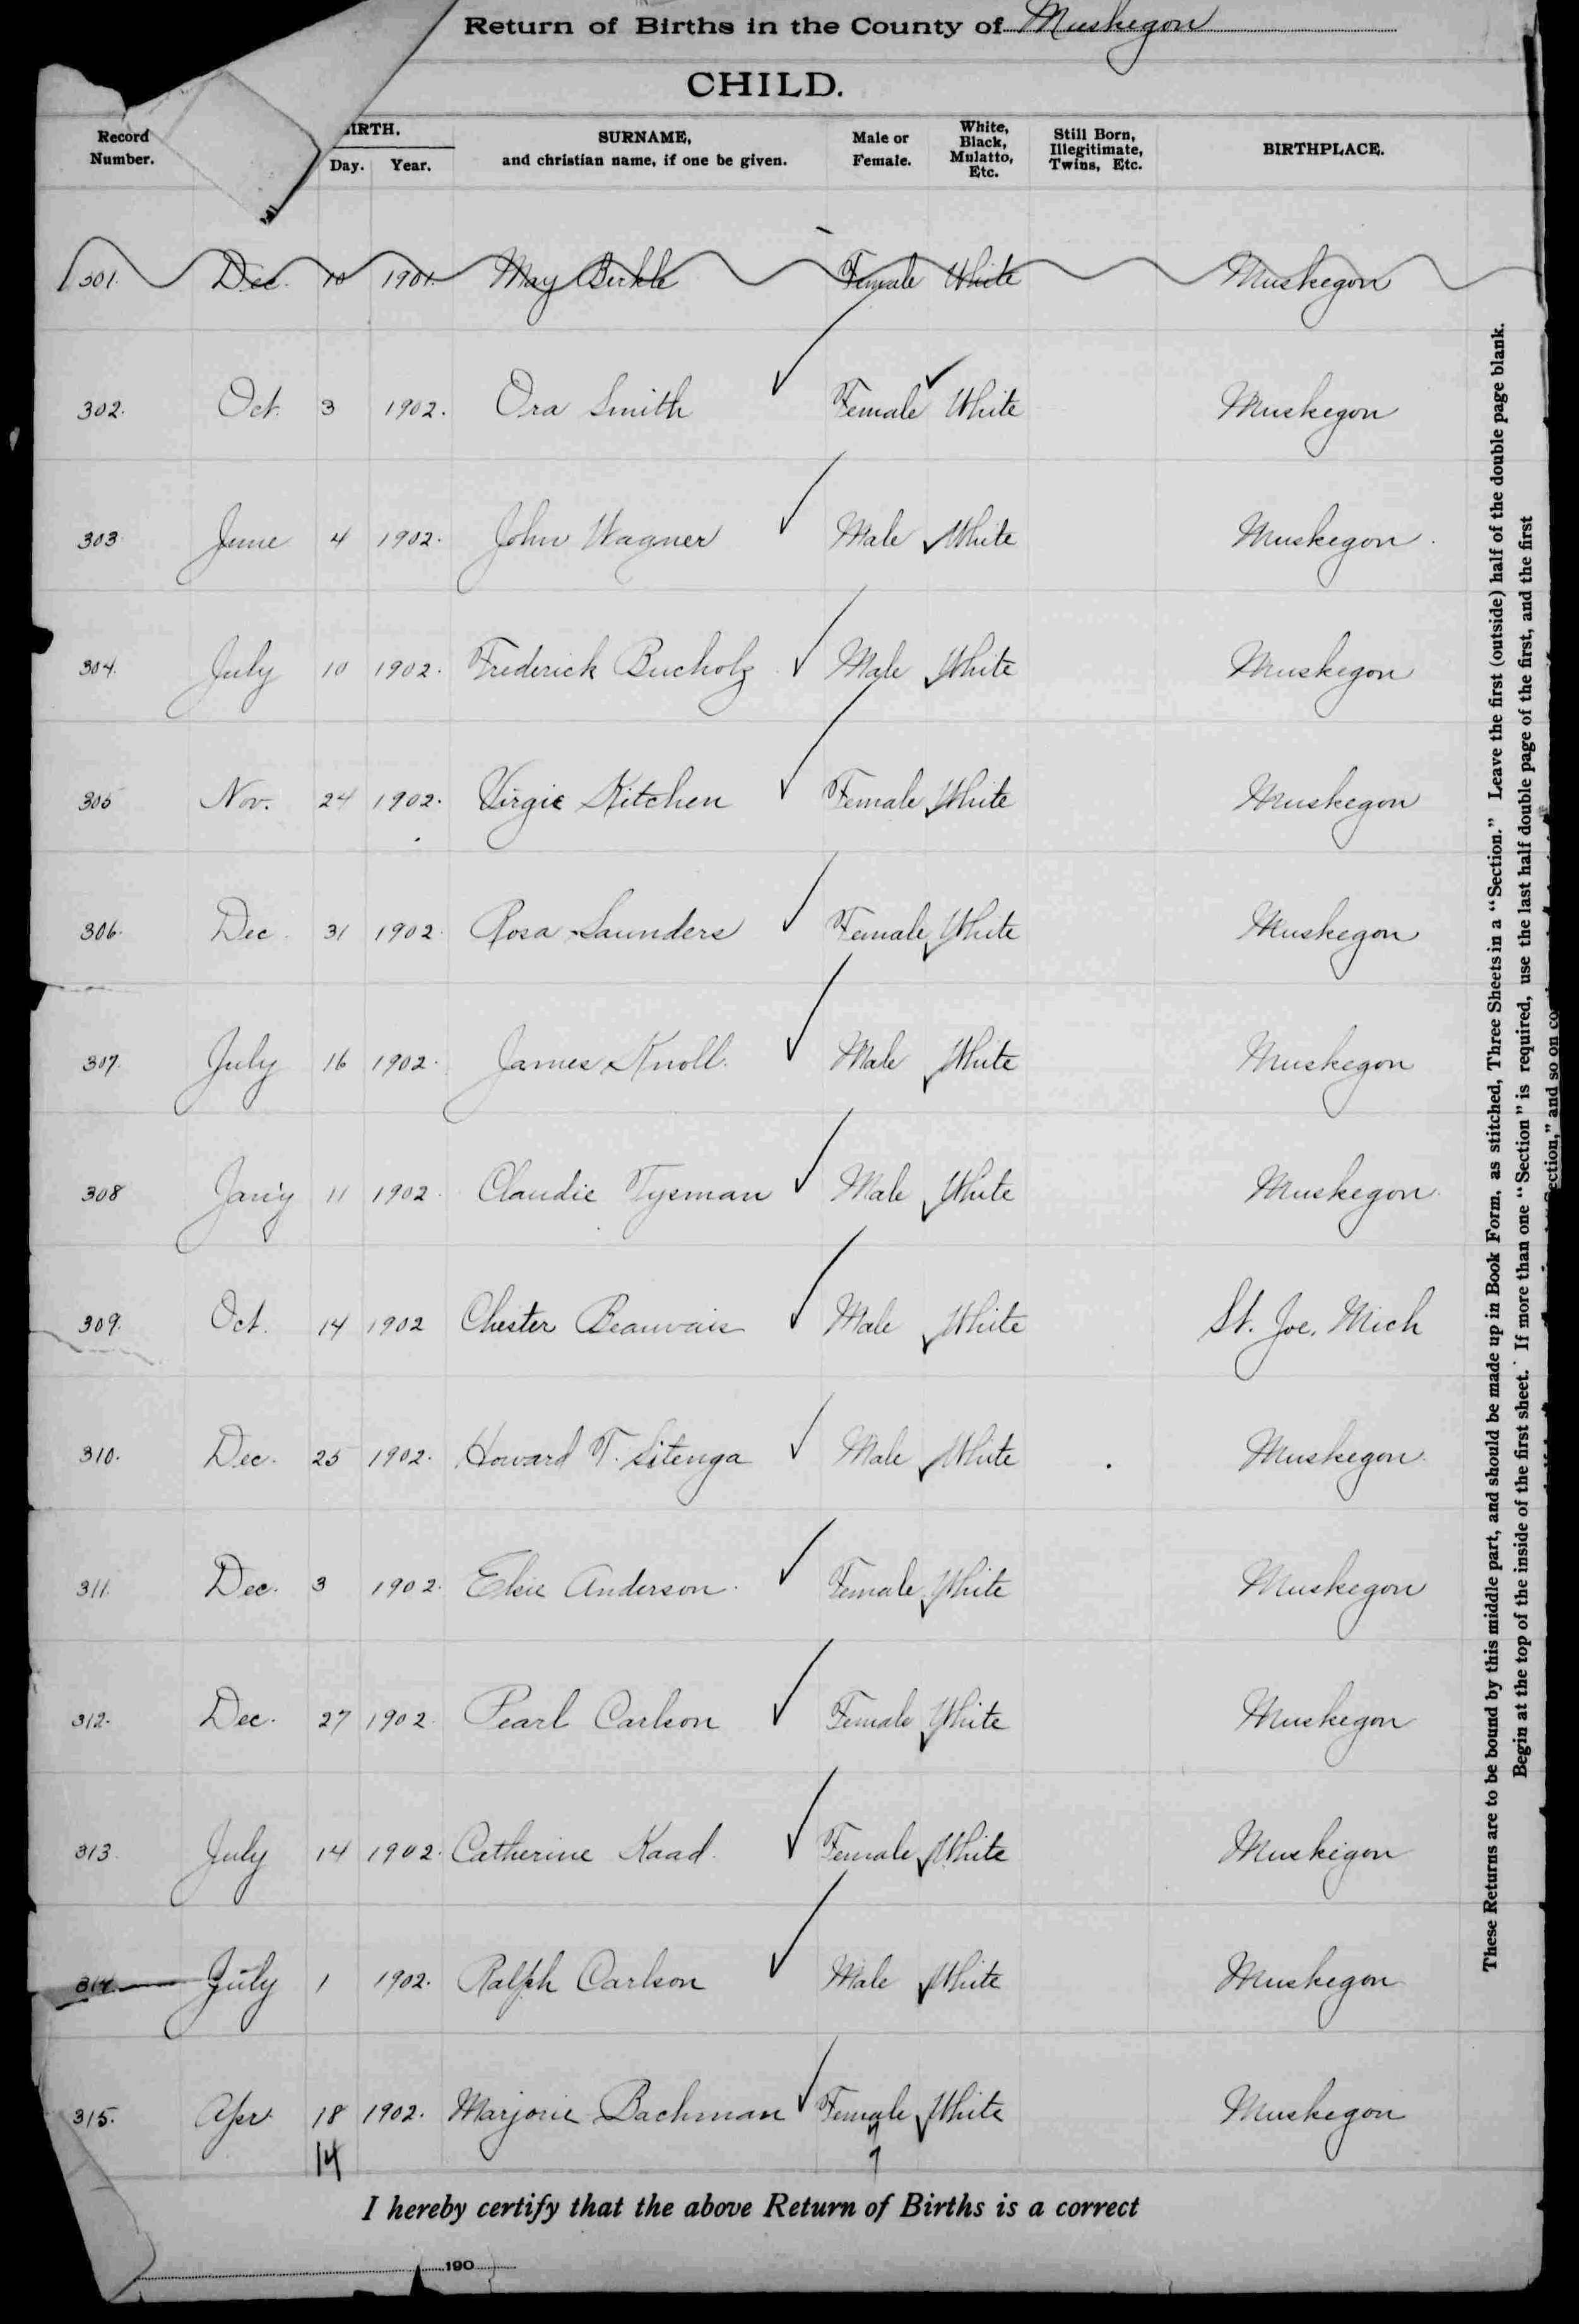 Return of Births in the County of Muskegon
CHILD.
Record Number. BIRTH. Day. Year. SURNAME, and christian name, if one be given. Male or Female. White, Black, Mulatto, Etc. Still Born, Illegitimate, Twins, Etc. BIRTHPLACE.
301. Dec. 10 1901. May Berkle Female White Muskegon
302. Oct. 3 1902. Ora Smith Female White Muskegon
303 June 4 1902. John Wagner Male White Muskegon.
304. July 10 1902. Frederick Bucholz Male White Muskegon
305 Nov. 24 1902. Virgie Kitchen Female White Muskegon
306. Dec. 31 1902. Rosa Saunders Female White Muskegon
307. July 16 1902. James Knoll. Male White Muskegon
308 Jan'y 11 1902. Claudie Tysman Male White Muskegon.
309. Oct. 14 1902 Chester Beauvais Male White St. Joe, Mich
310. Dec. 25 1902. Howard T. Sitenga Male White Muskegon.
311. Dec. 3 1902. Elsie Anderson. Female White Muskegon
312. Dec. 27 1902. Pearl Carlson Female White Muskegon
313. July 14 1902. Catherine Kaad. Female White Muskegon
314. July 1 1902. Ralph Carlson Male White Muskegon
315. Apr. 18 1902. Marjorie Bachman Female White Muskegon
14
I hereby certify that the above Return of Births is a correct
190
These Returns are to be bound by this middle part, and should be made up in Book Form, as stitched, Three Sheets in a "Section." Leave the first (outside) half of the double page blank.
Begin at the top of the inside of the first sheet. If more than one "Section" is required, use the last half double page of the first, and the first
Section," and so on